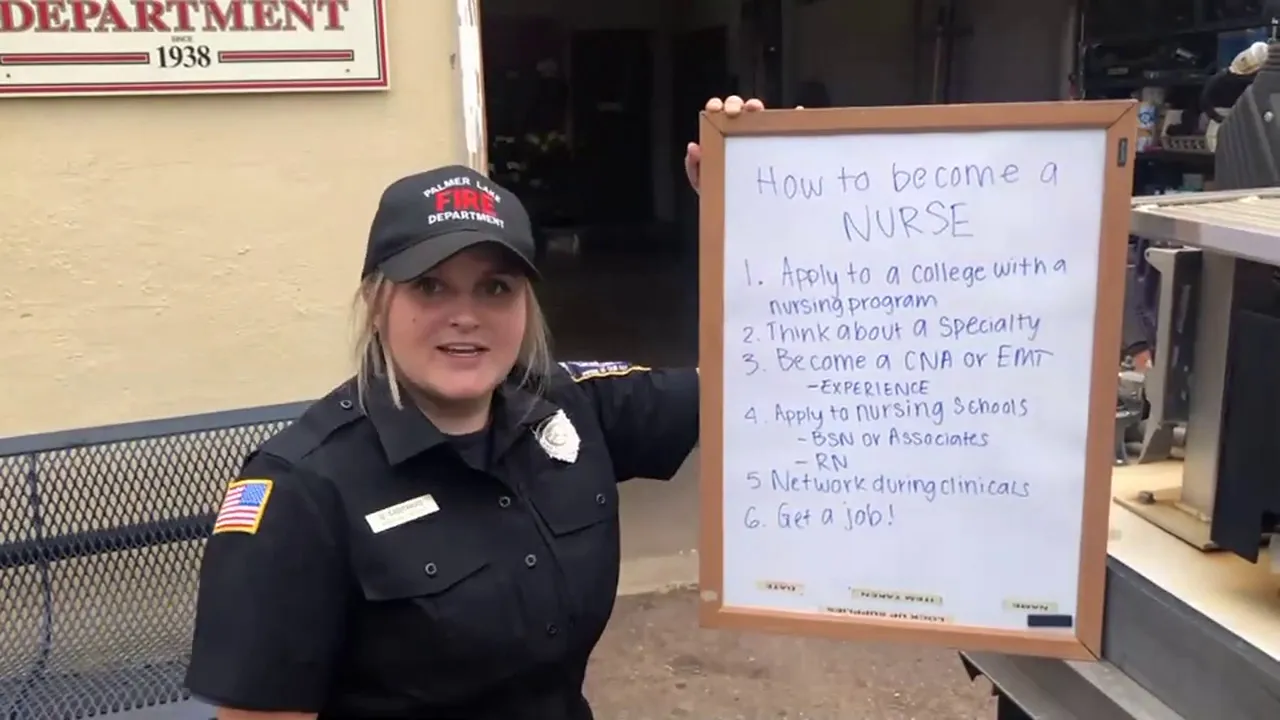 DEPARTMENT
SINCE
1938
PALMER LAKE
FIRE
DEPARTMENT
How to become a
NURSE
1. Apply to a college with a
nursing program
2. Think about a specialty
3. Become a CNA or EMT
-EXPERIENCE
4. Apply to nursing schools
- BSN or Associates
- RN
5 Network during clinicals
6. Get a job!
DATE
ITEM TAKEN
NAME
LOCK UP SUPPLIES